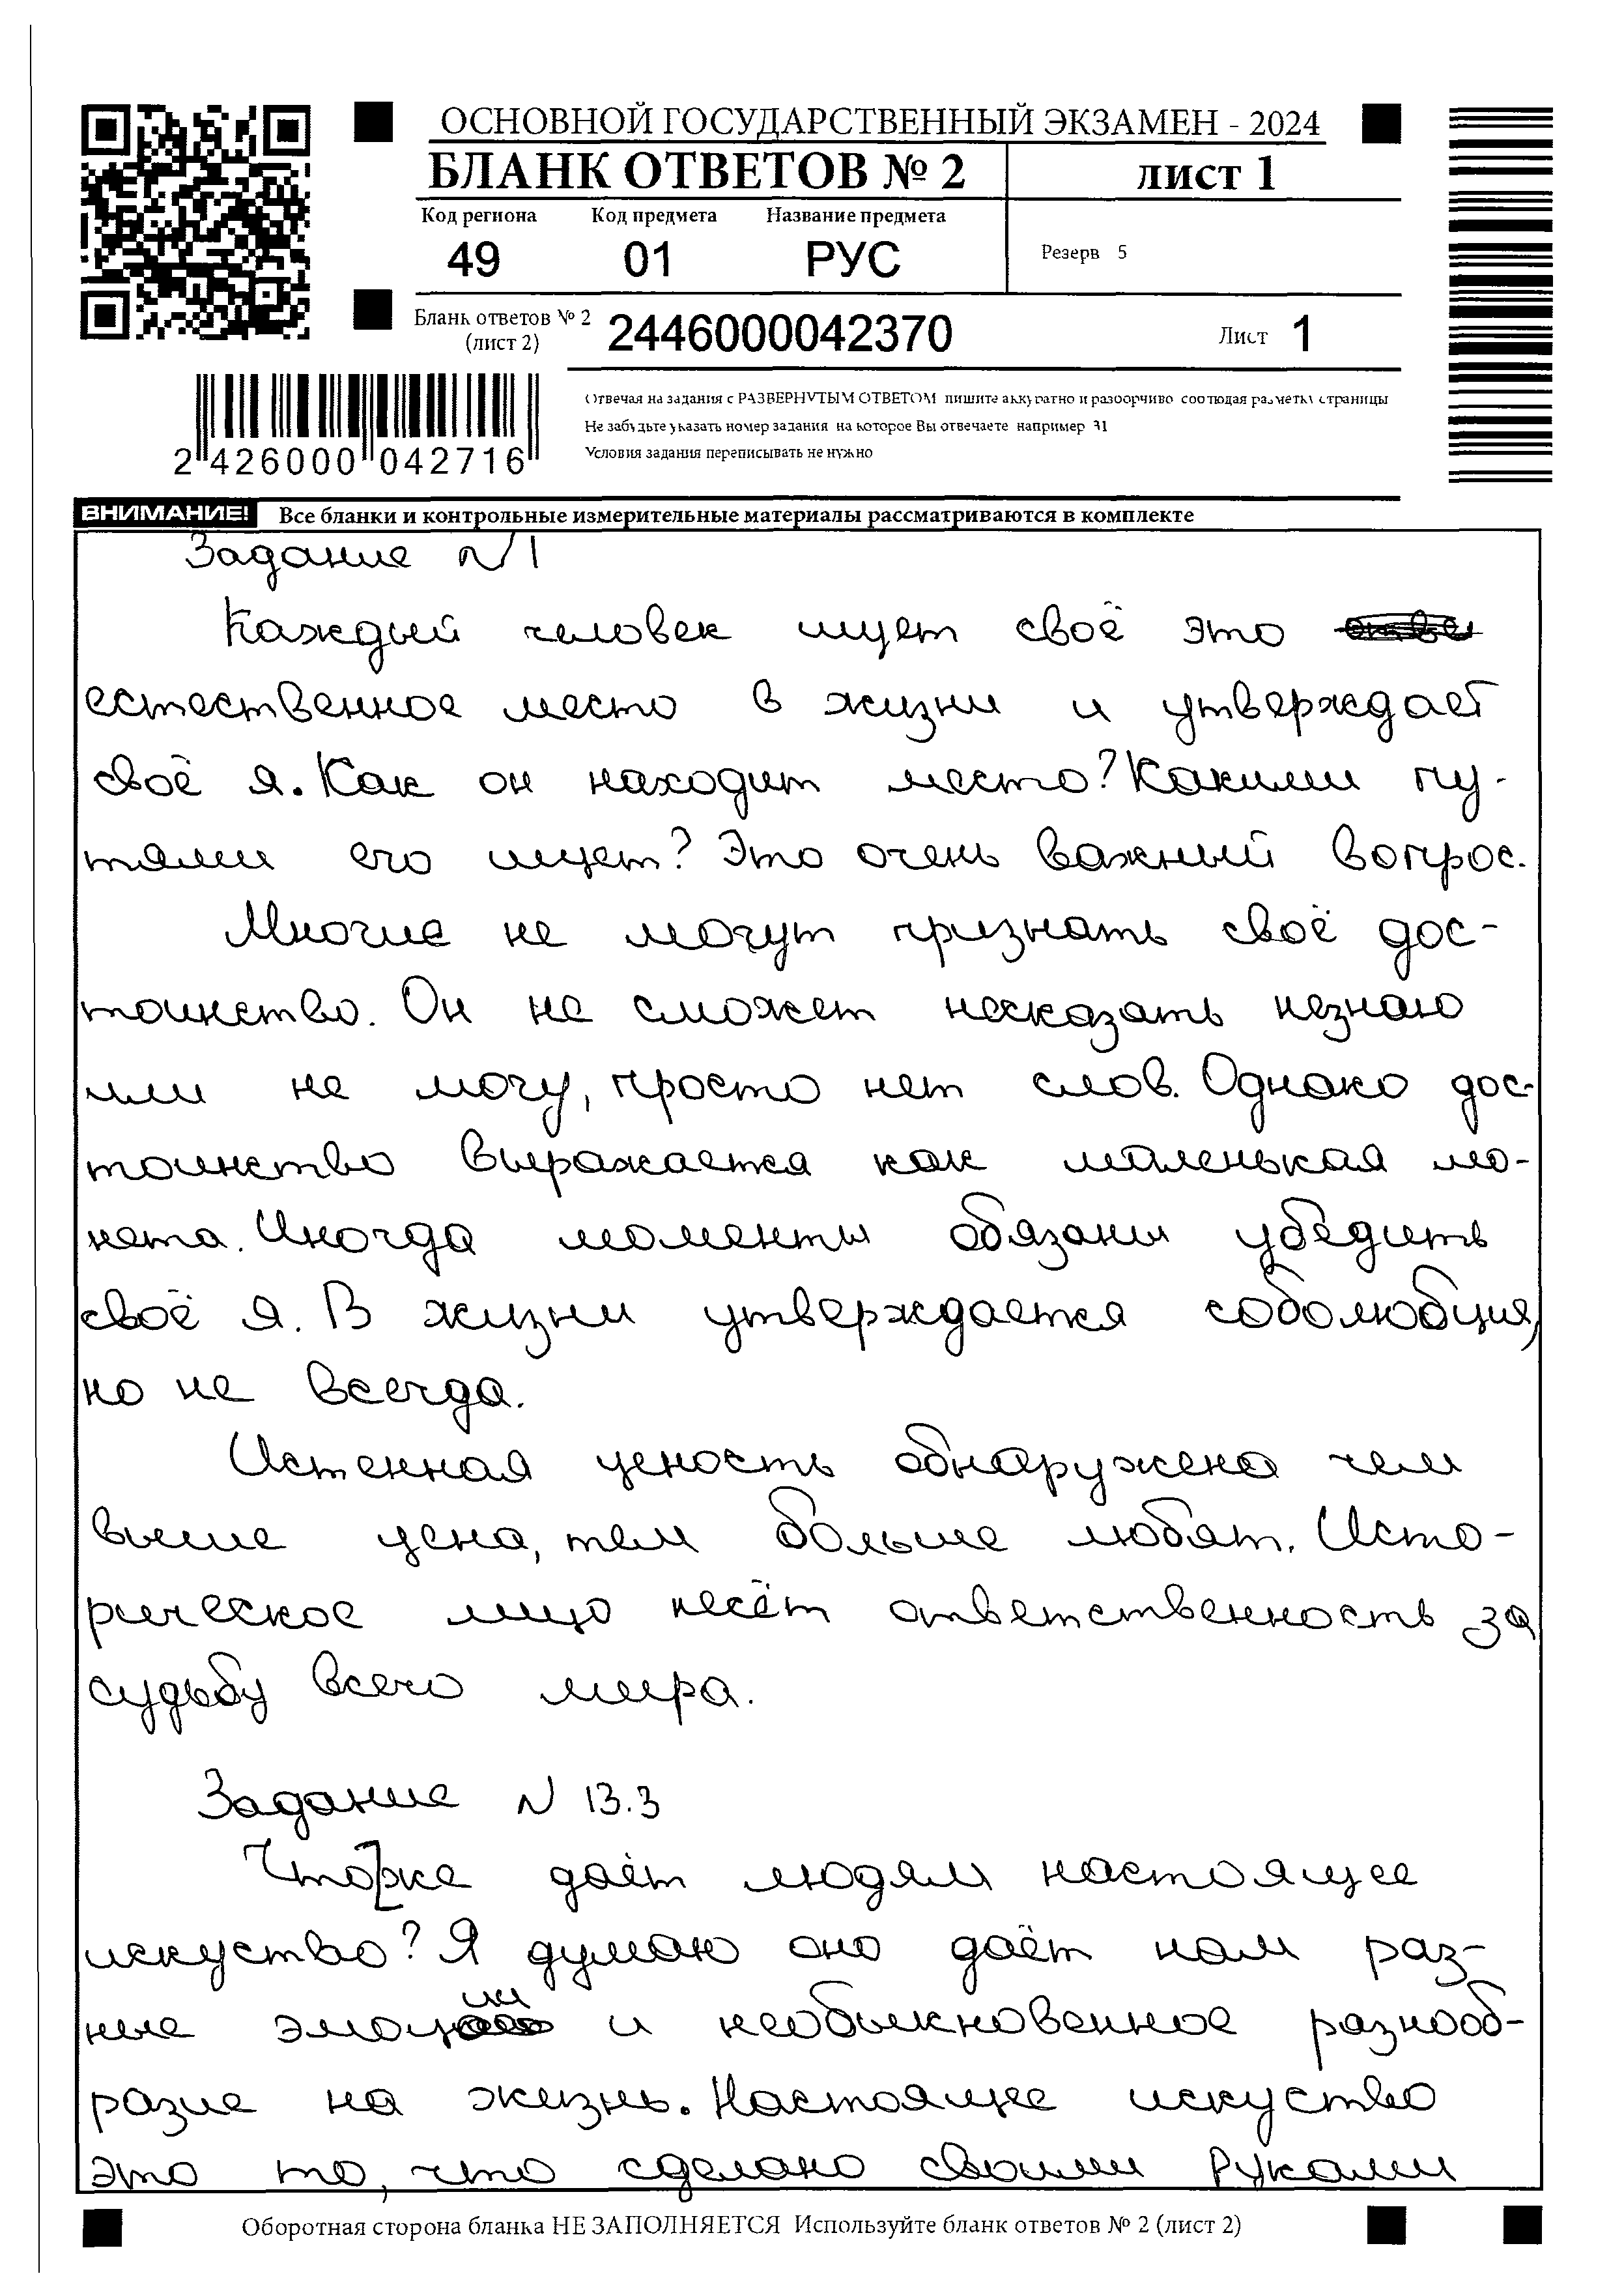 ОСНОВНОЙ ГОСУДАРСТВЕННЫЙ ЭКЗАМЕН - 2024
БЛАНК ОТВЕТОВ № 2
лист 1
Код региона Код предмета Название предмета
49 01 РУС
Резерв 5
Бланк ответов № 2 (лист 2) 2446000042370
Лист 1
2 426000 042716
Отвечая на задания с РАЗВЕРНУТЫМ ОТВЕТОМ пишите аккуратно и разборчиво соблюдая разметку страницы
Не забудьте указать номер задания на которое Вы отвечаете например 31
Условия задания переписывать не нужно
ВНИМАНИЕ! Все бланки и контрольные измерительные материалы рассматриваются в комплекте
Задание №1
Каждый человек ищет своё это
естественное место в жизни и утверждает
своё я. Как он находит место? Какими пу-
тями его ищет? Это очень важный вопрос.
Многие не могут признать своё дос-
тоинство. Он не сможет несказать незнаю
или не могу, просто нет слов. Однако дос-
тоинство выражается как маленькая мо-
нета. Иногда моменты обязаны убедить
своё я. В жизни утверждается соболюбция,
но не всегда.
Истенная ценость обнаружена чем
выше цена, тем больше любят. Исто-
рическое лицо несёт ответственность за
судьбу всего мира.
Задание № 13.3
Что же даёт людям настоящее
искуство? Я думаю оно даёт нам раз-
ные эмоции и необыкновенное разнооб-
разие на жизнь. Настоящее искуство
это то, что сделано своими руками
Оборотная сторона бланка НЕ ЗАПОЛНЯЕТСЯ Используйте бланк ответов № 2 (лист 2)